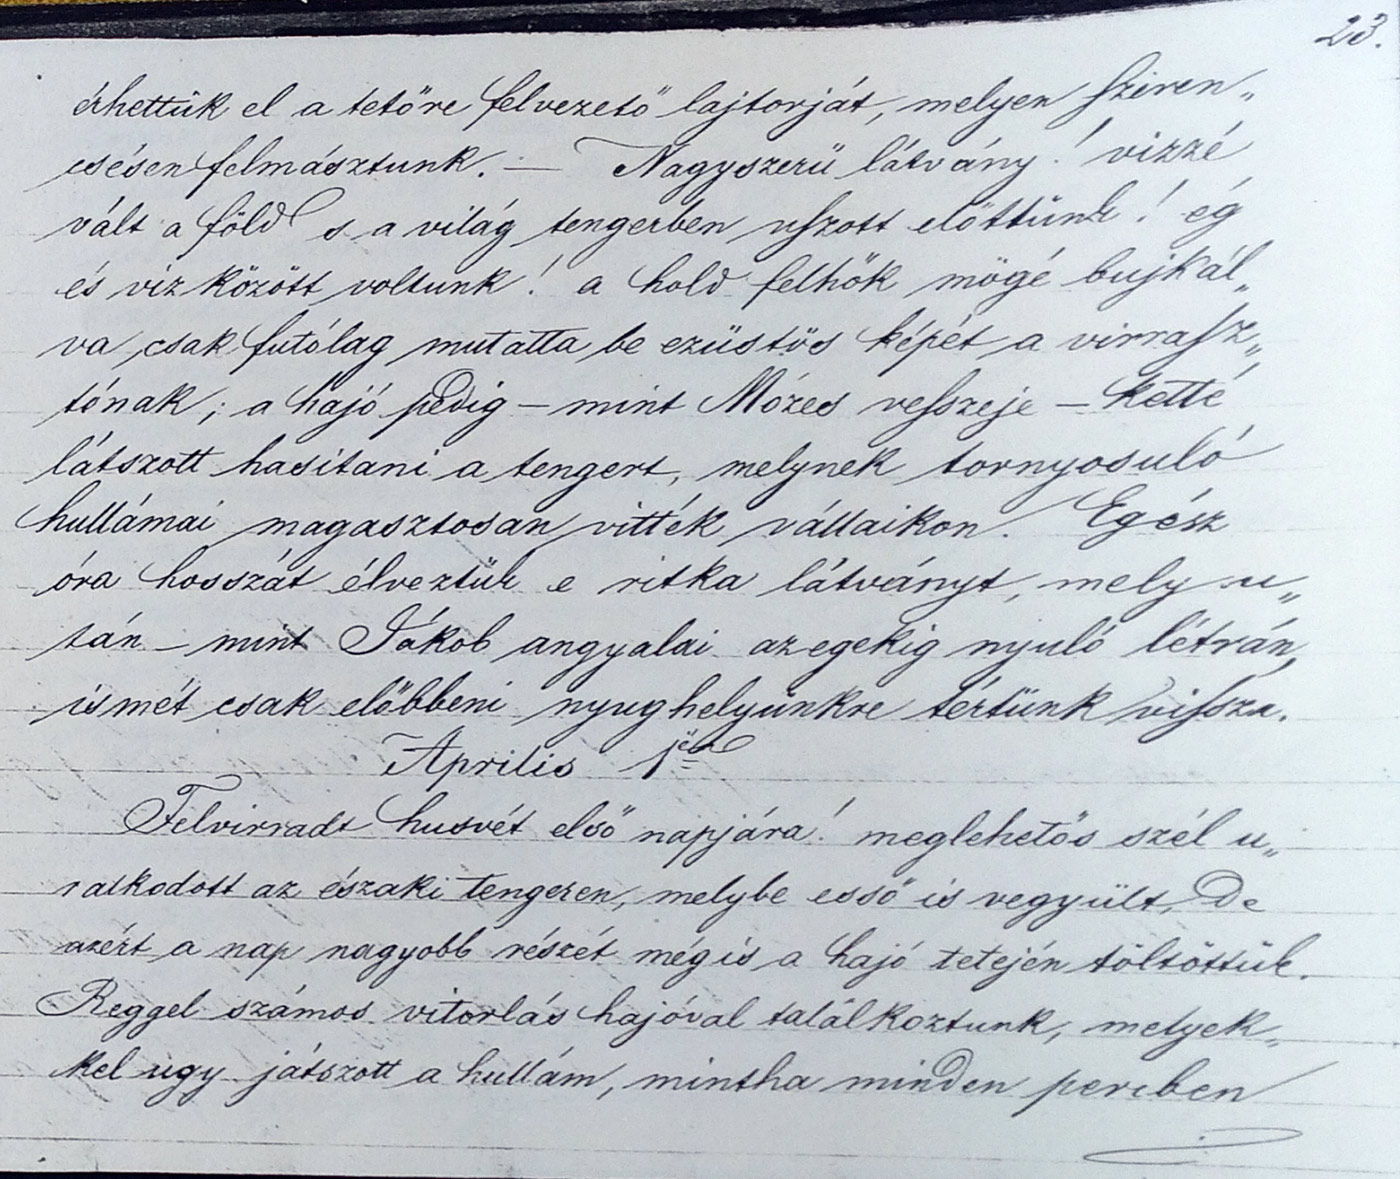 23.
érhettük el a tetőre felvezető lajtorját, melyen sziren„
csésen felmásztunk. — Nagyszerü látvány! vizzé
vált a föld s a világ tengerben uszott előttünk! ég
és viz között voltunk! a hold felhők mögé bujkál„
va csak futólag mutatta be ezüstös képét a virrasz„
tónak; a hajó pedig – mint Mózes vesszeje – ketté
látszott hasitani a tengert, melynek tornyosuló
hullámai magasztosan vitték vállaikon. Egész
óra hosszát élveztük e ritka látványt, mely u„
tán – mint Jákob angyalai az egekig nyuló létrán,
ismét csak előbbeni nyughelyünkre tértünk vissza.
Aprilis 1jén
Felvirradt husvét első napjára! meglehetős szél u„
ralkodott az északi tengeren, melybe esső is vegyült, De
azért a nap nagyobb részét mégis a hajó tetején töltöttük.
Reggel számos vitorlás hajóval találkoztunk, melyek„
kel ugy játszott a hullám, mintha minden percben